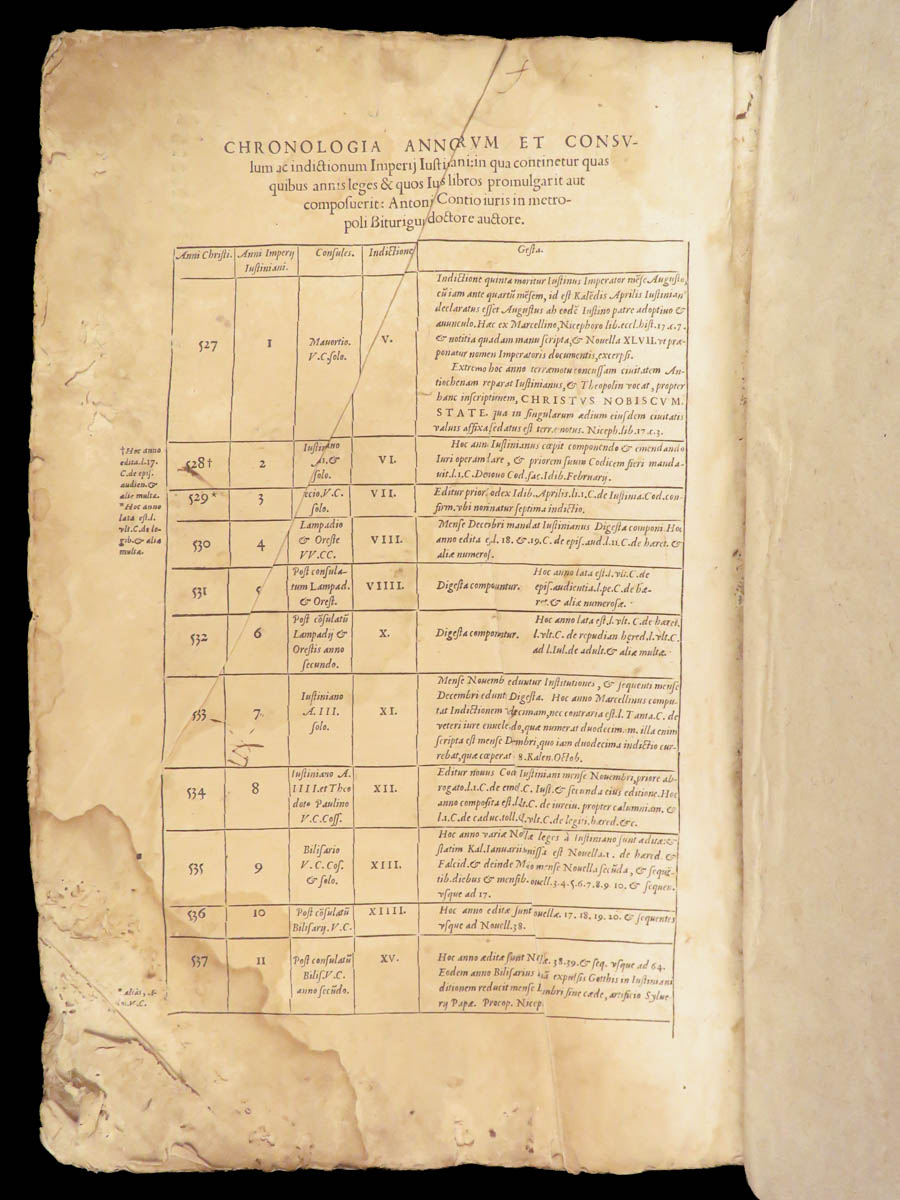 CHRONOLOGIA ANNORVM ET CONSV-
lum ac indictionum Imperij Iustiniani: in qua continetur quas
quibus annis leges & quos Iuris libros promulgarit aut
composuerit: Antonio Contio iuris in metro-
poli Biturigum doctore auctore.
Anni Christi. Anni Imperij Consules. Indictione Gesta.
Iustiniani.
Indictione quinta moritur Iustinus Imperator mēse Augusto,
cū iam ante quartū mēsem, id est Kalēdis Aprilis Iustinian
declaratus esset Augustus ab eodē Iustino patre adoptiuo &
auunculo. Hæc ex Marcellino, Nicephoro lib. eccl. hist. 17. c. 7.
527 1 Mauortio. V. & notitia quadam manuscripta, & Nouella XLVII. vt præ-
V.C. solo. ponatur nomen Imperatoris documentis, excerpsi.
Extremo hoc anno terræmotu concussam ciuitatem An-
tiochenam reparat Iustinianus, & Theopolin vocat, propter
hanc inscriptionem, CHRISTVS NOBISCVM.
STATE. quæ in singularum ædium eiusdem ciuitatis
valuis affixa sedatus est terræmotus. Niceph. lib. 17. c. 3.
†Hoc anno
edita.l.17.
C. de epis.
audien. &
aliæ multæ.
528† 2 Iustiniano VI. Hoc ann. Iustinianus cœpit componendo & emendando
A.& Iuri operam dare, & priorem suum Codicem fieri manda-
solo. uit. l.1.C. De nouo Cod. fac. Idib. February.
*Hoc anno
lata est.l.
vlt. C. de le-
gib. & aliæ
multæ.
529* 3 ecio. V.C. VII. Editur prior Codex Idib. Aprilis. l.1.C. de Iustinia. Cod. con-
solo. firm. vbi nominatur septima indictio.
Lampadio Mense Decembri mandat Iustinianus Digesta componi. Hoc
530 4 & Oreste VIII. anno edita est. l. 18. & .19. C. de epis. aud. l.11. C. de hæret. &
VV.CC. aliæ numeros.
Post consula- Hoc anno lata est. l. vlt. C. de
531 5 tum Lampad. VIIII. Digesta componuntur. epis. audientia. l. pe. C. de hæ-
& Orest. ret. & aliæ numerosæ.
Post cōsulatū Hoc anno lata est. l. vlt. C. de hæret.
532 6 Lampadij & X. Digesta componuntur. l. vlt. C. de repudian. hered. l. vlt. C.
Orestis anno ad l. Iul. de adult. & aliæ multæ.
secundo.
Mense Nouemb. eduntur Institutiones, & sequenti mense
Iustiniano Decembri edunt. Digesta. Hoc anno Marcellinus compu-
533 7 A. III. XI. tat Indictionem vndecimam, nec contraria est. l. Tanta. C. de
solo. veteri iure enucleādo, quæ numerat duodecimam. illa enim
scripta est mense Decembri, quo iam duodecima indictio cur-
rebat, quæ cœperat 8. Kalen. Octob.
Iustiniano A. Editur nouus Cod. Iustiniani mense Nouembri, priore ab-
534 8 IIII. et Theo XII. rogato. l.1.C. de emēd. C. Iust. & secunda eius editione. Hoc
doto Paulino anno composita est. l. vlt. C. de iureiu. propter calumniam. &
V.C. Coss. l.1.C. de caduc. toll. & vlt. C. de legiti. hæred. &c.
Hoc anno variæ Nouellæ leges à Iustiniano sunt æditæ: &
Bilisario statim Kal. Ianuarij missa est Nouella .1. de hæred. &
535 9 V.C. Cos. XIII. Falcid. & deinde Martio mense Nouella secūda, & sequē-
& solo. tib. diebus & mensib. Nouell. 3. 4. 5. 6. 7. 8. 9. 10. & sequen.
vsque ad 17.
536 10 Post cōsulatū XIIII. Hoc anno editæ sunt Nouellæ. 17. 18. 19. 20. & sequentes
Bilisarij. V.C. vsque ad Nouell. 38.
537 11 Post consulatū XV. Hoc anno æditæ sunt Nouellæ. 38. 39. & seq. vsque ad 64.
Bilis. V.C. Eodem anno Bilisarius Româ expulsis Gotthis in Iustiniani
anno secūdo. ditionem reducit mense Decembri sine cæde, artificio Sylue-
rij Papæ. Procop. Nicep
*aliàs,
V.C.